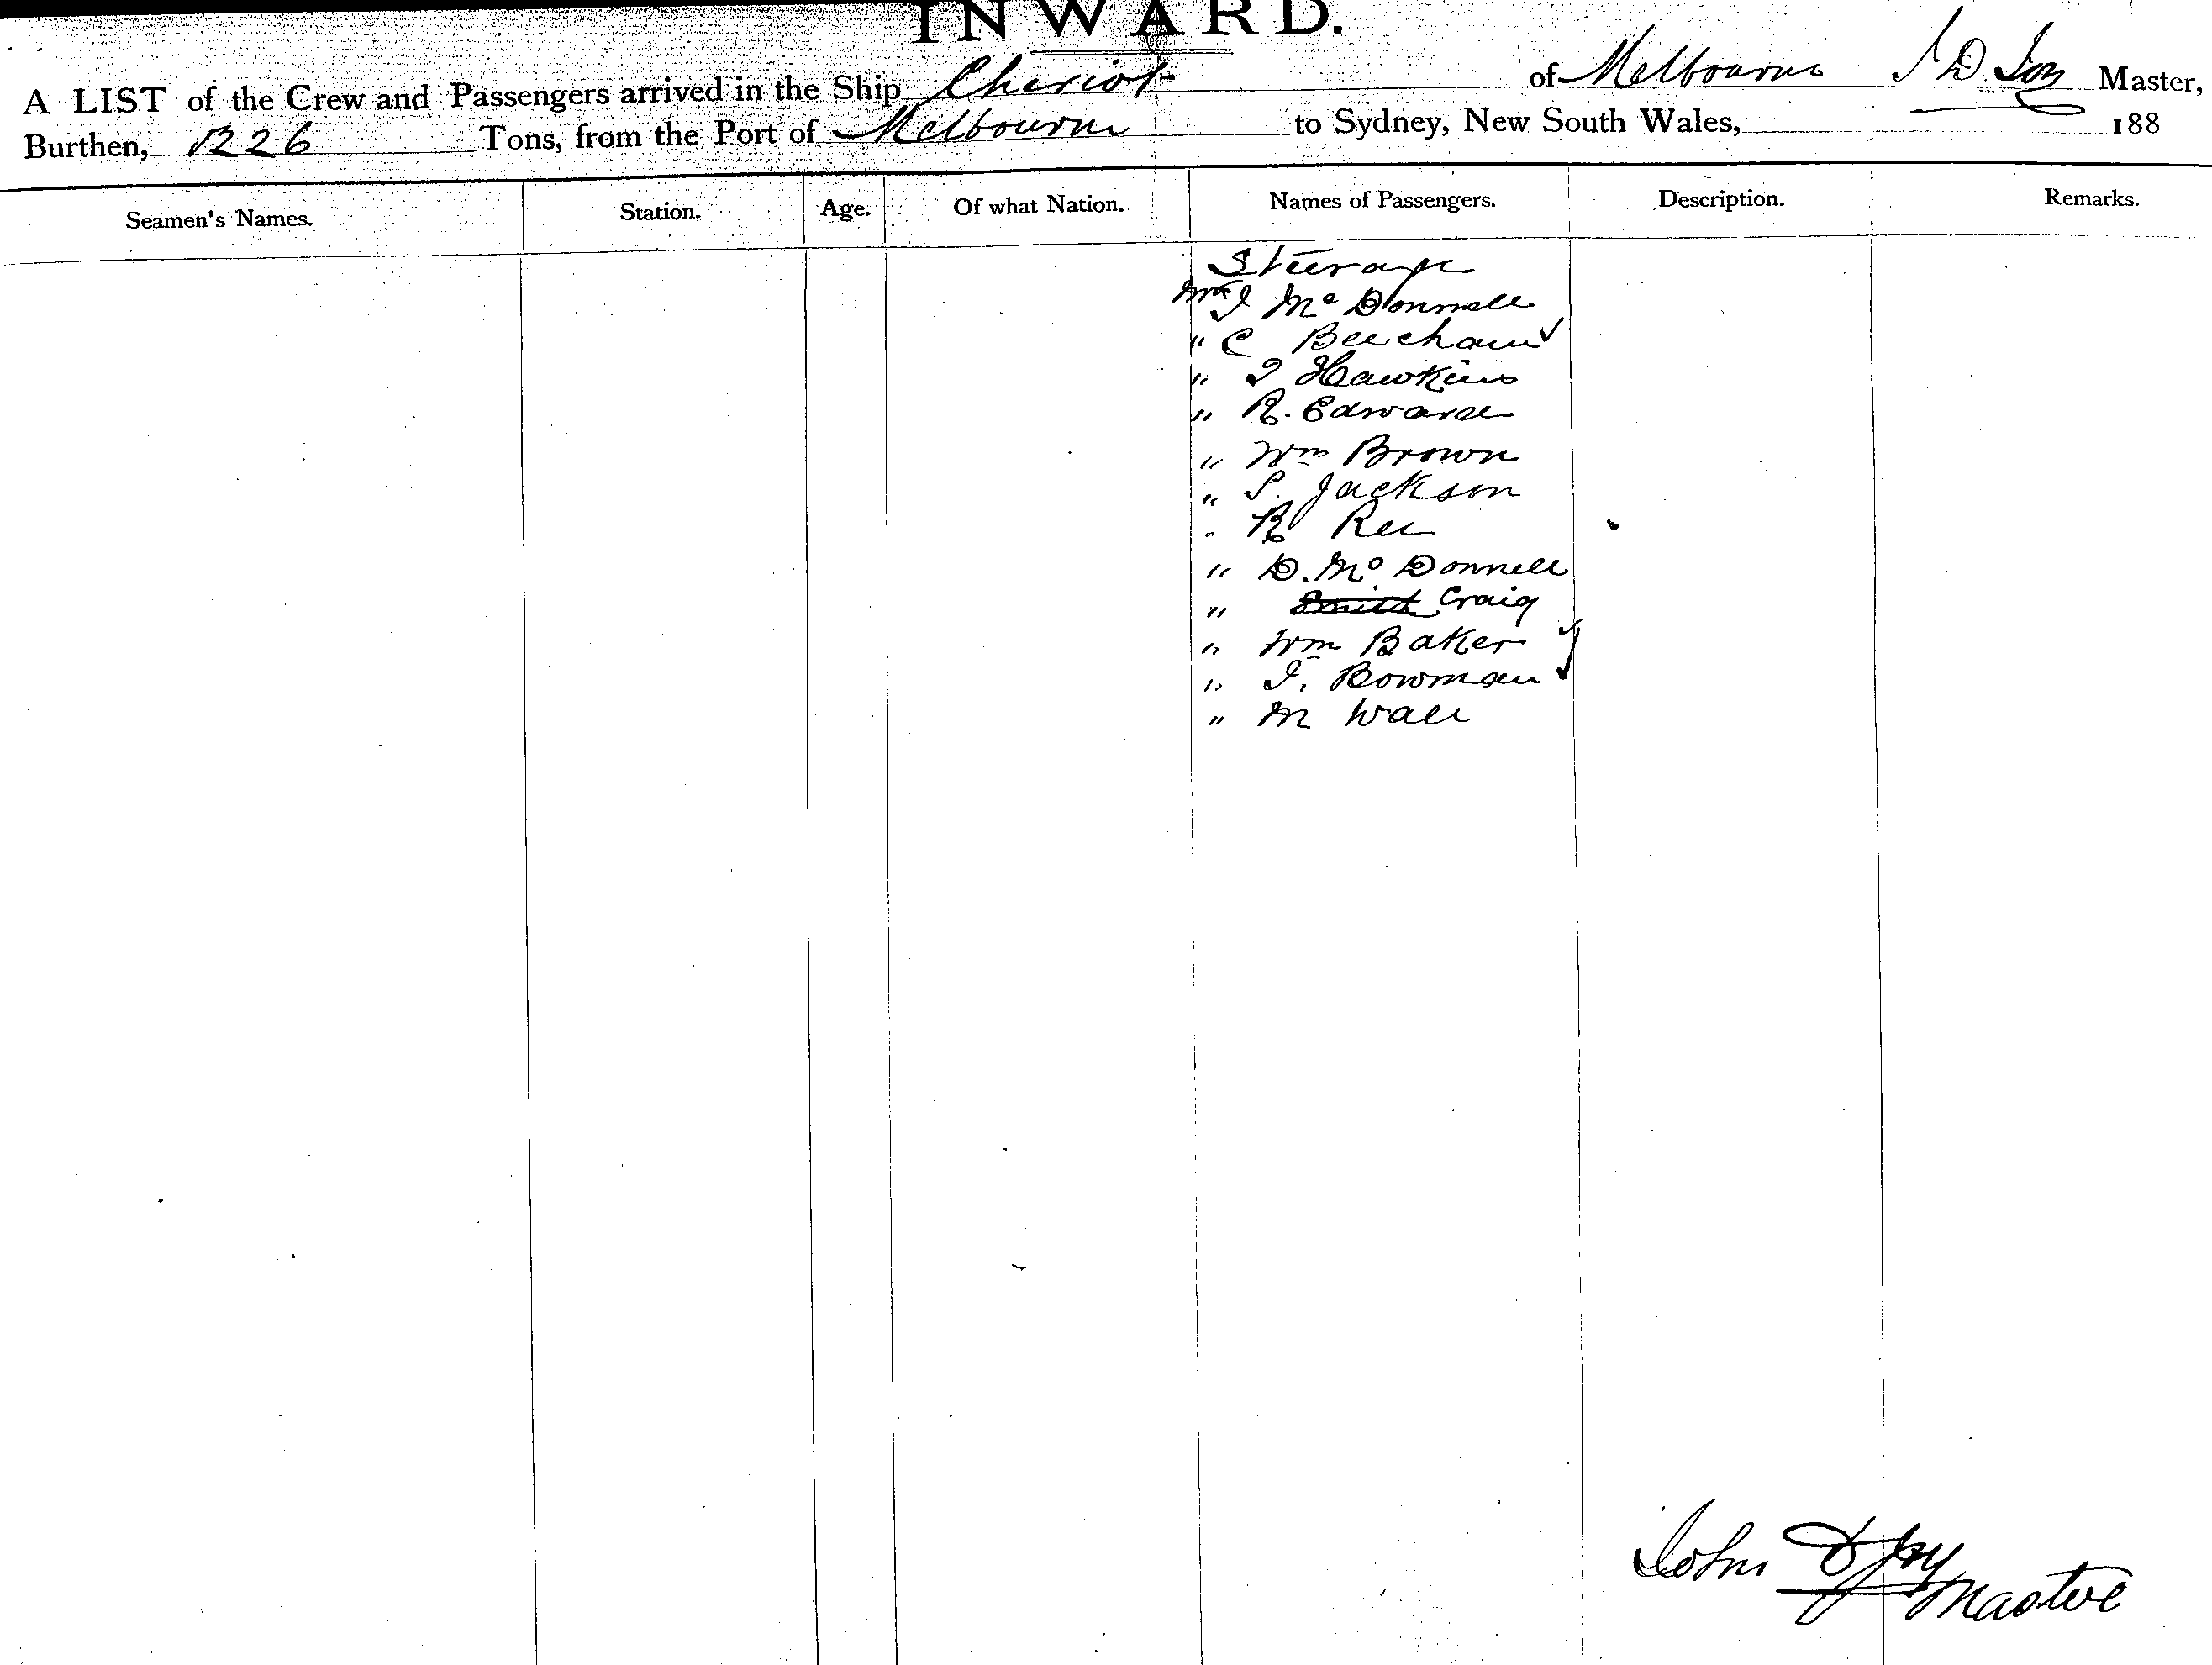 INWARD.
A LIST of the Crew and Passengers arrived in the Ship Cheviot of Melbourne J D Joy Master,
Burthen, 1226 Tons, from the Port of Melbourne to Sydney, New South Wales, 188
Seamen's Names. Station. Age. Of what Nation. Names of Passengers. Description. Remarks.
Steerage
Mr J Mc Donnell
" C Beecham
" J Hawkins
" R. Edward
" Wm Brown
" S. Jackson
" R Ree
" D. Mc Donnell
" Smith Craig
" Wm Baker
" J. Bowman
" M Wall
John D Joy
Master